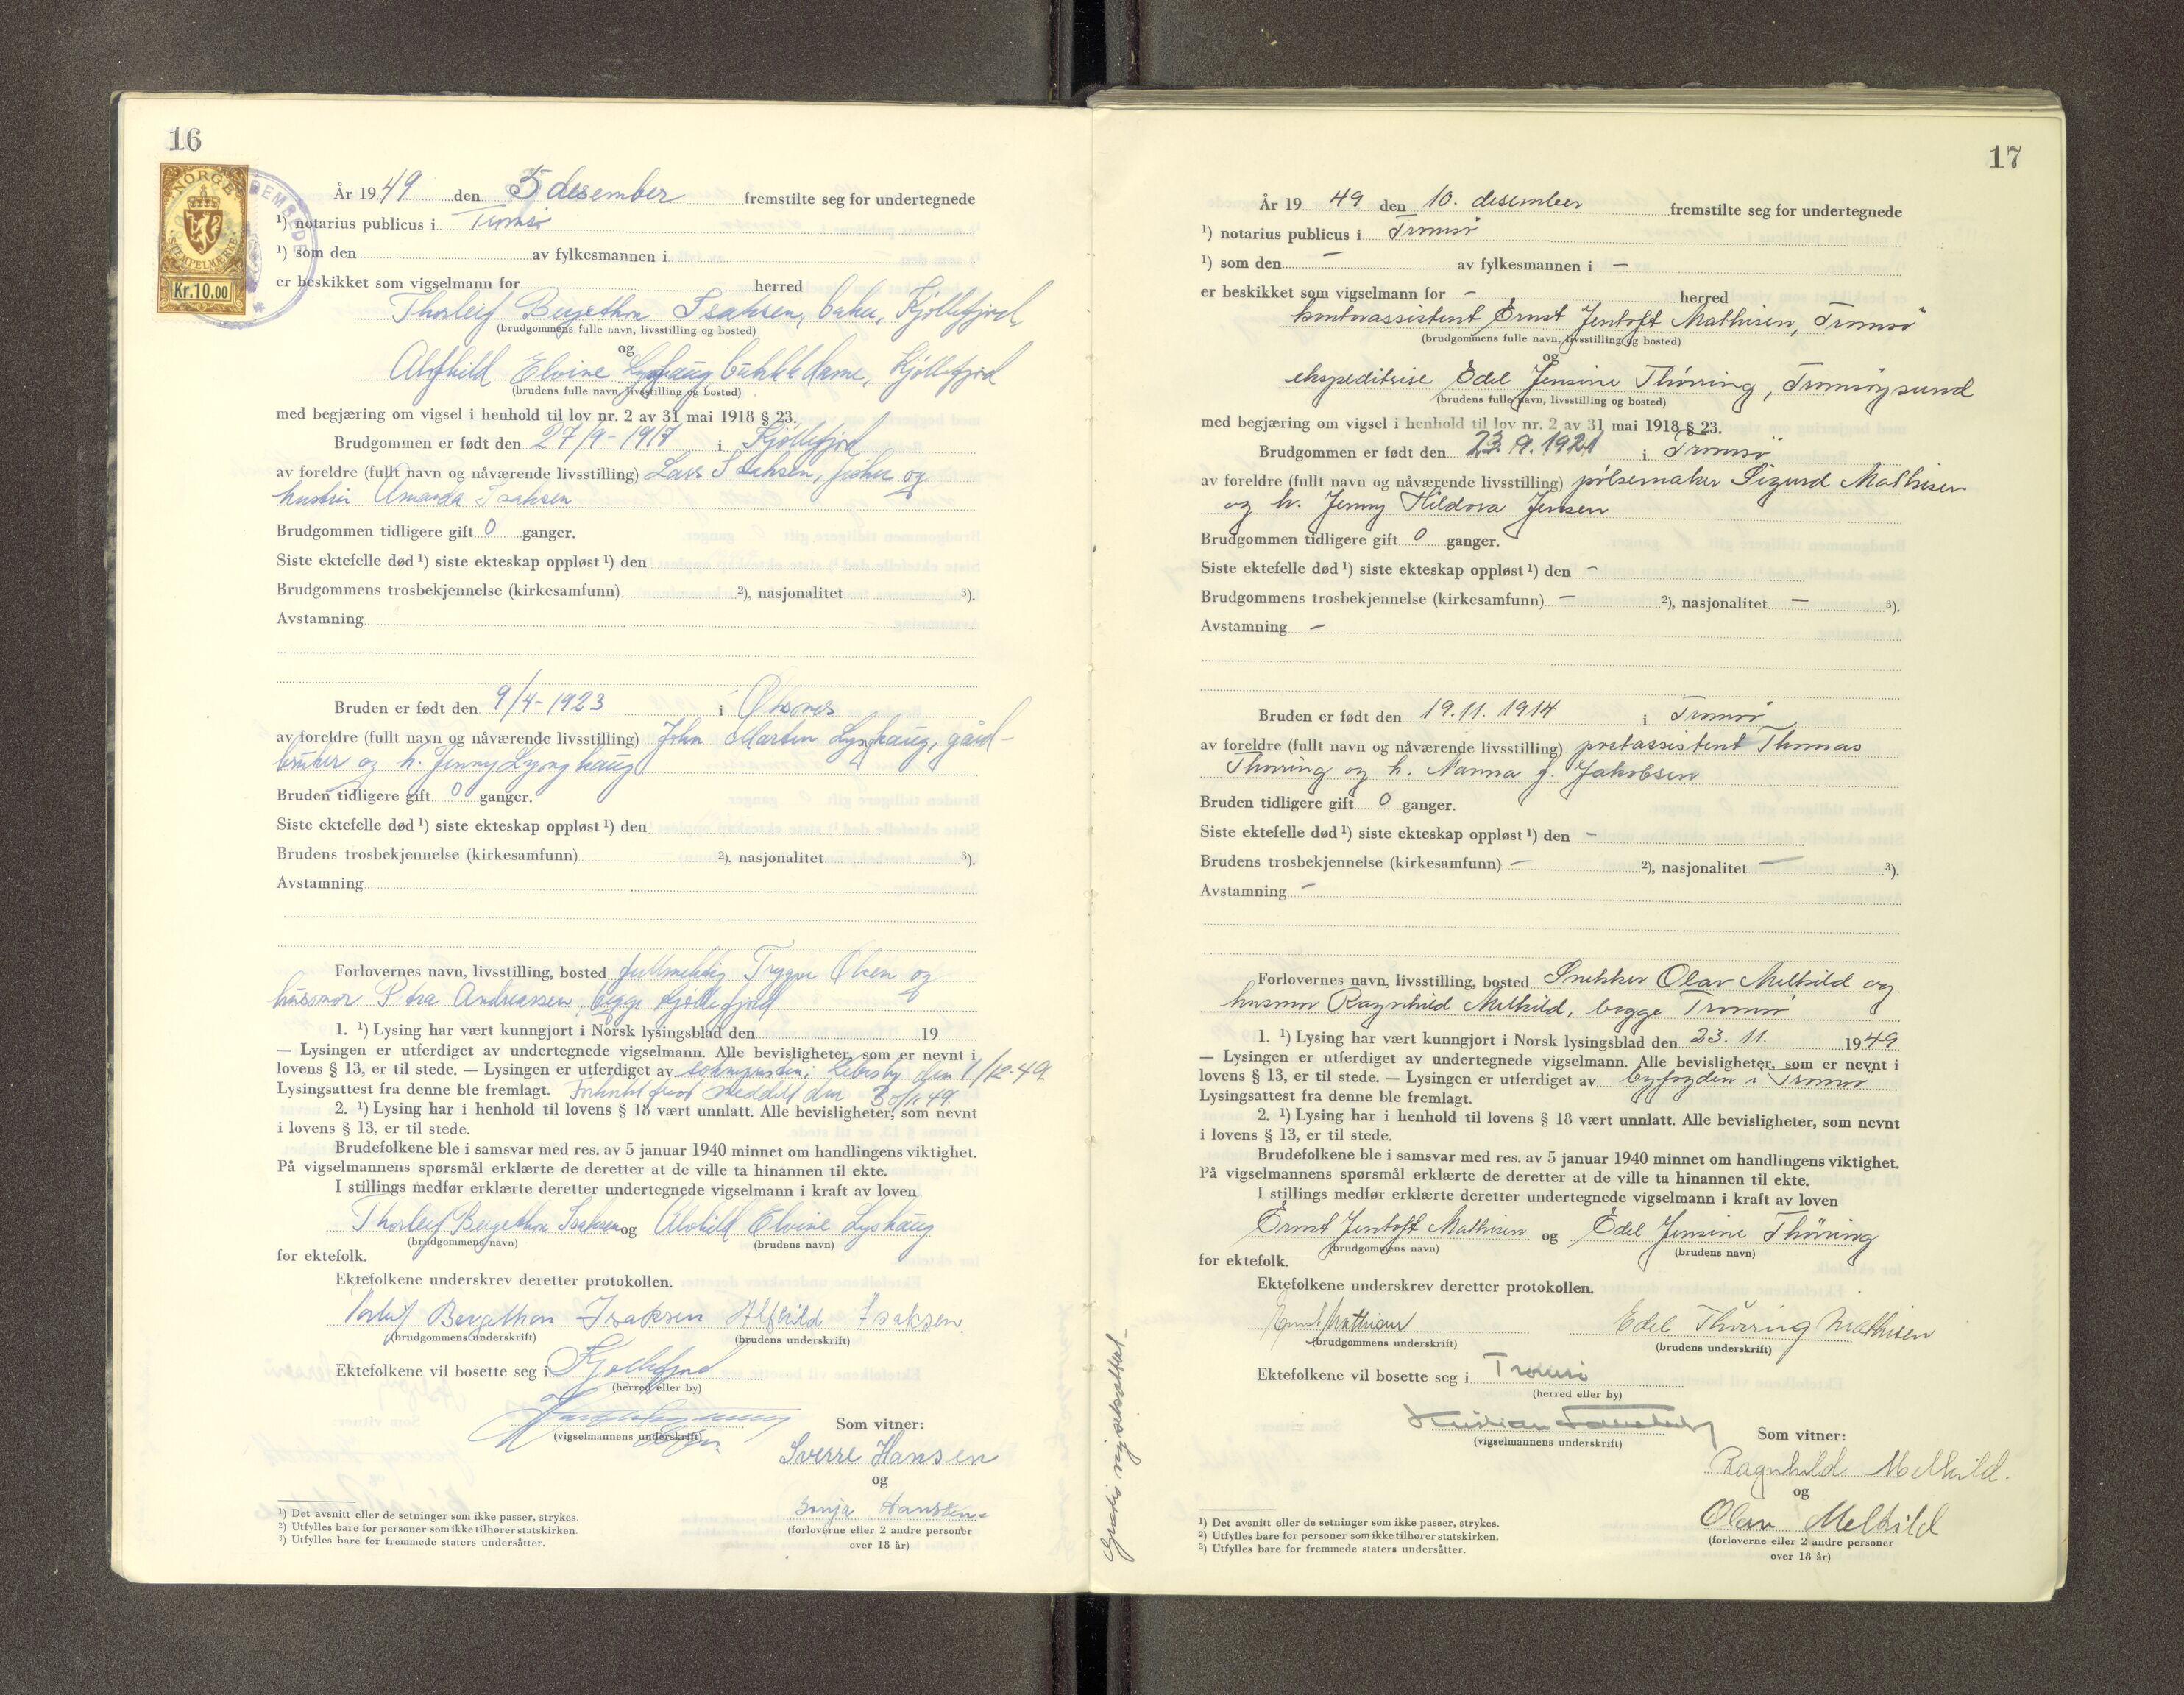 16
NORGE
STEMPELMERKE
Kr.10.00
År 1949 den 5 desember fremstilte seg for undertegnede
¹) notarius publicus i Tromsø
¹) som den av fylkesmannen i
er beskikket som vigselmann for herred
Thorleif Bergethon Isaksen, baker, Kjøllefjord
(brudgommens fulle navn, livsstilling og bosted)
og
Alfhild Elvine Lyshaug butikkdame, Kjøllefjord
(brudens fulle navn, livsstilling og bosted)
med begjæring om vigsel i henhold til lov nr. 2 av 31 mai 1918 § 23.
Brudgommen er født den 27/9-1917 i Kjøllefjord
av foreldre (fullt navn og nåværende livsstilling) Lars Isaksen, fisker og
hustru Amanda Isaksen
Brudgommen tidligere gift 0 ganger.
Siste ektefelle død ¹) siste ekteskap oppløst ¹) den
Brudgommens trosbekjennelse (kirkesamfunn) ²), nasjonalitet ³).
Avstamning
Bruden er født den 9/4-1923 i Øksnes
av foreldre (fullt navn og nåværende livsstilling) John Martin Lyshaug, gård-
bruker og h. Jenny Lyshaug
Bruden tidligere gift 0 ganger.
Siste ektefelle død ¹) siste ekteskap oppløst ¹) den
Brudens trosbekjennelse (kirkesamfunn) ²), nasjonalitet ³).
Avstamning
Forlovernes navn, livsstilling, bosted fullmektig Trygve Olsen og
husmor Petra Andreassen, begge Kjøllefjord
1. ¹) Lysing har vært kunngjort i Norsk lysingsblad den 19
— Lysingen er utferdiget av undertegnede vigselmann. Alle bevisligheter, som er nevnt i
lovens § 13, er til stede. — Lysingen er utferdiget av sokneprsten i Lebesby den 1/12-49.
Lysingsattest fra denne ble fremlagt. meddelt den 30/11 49.
2. ¹) Lysing har i henhold til lovens § 18 vært unnlatt. Alle bevisligheter, som nevnt
i lovens § 13, er til stede.
Brudefolkene ble i samsvar med res. av 5 januar 1940 minnet om handlingens viktighet.
På vigselmannens spørsmål erklærte de deretter at de ville ta hinannen til ekte.
I stillings medfør erklærte deretter undertegnede vigselmann i kraft av loven
Thorleif Bergethon Isaksen og Alvhild Elvine Lyshaug
(brudgommens navn) (brudens navn)
for ektefolk.
Ektefolkene underskrev deretter protokollen.
Torleif Bergethon Isaksen Alfhild Isaksen.
(brudgommens underskrift) (brudens underskrift)
Ektefolkene vil bosette seg i Kjøllefjord
(herred eller by)
(vigselmannens underskrift)
Som vitner:
Sverre Hansen
og
Sonja Hanssen.
(forloverne eller 2 andre personer
over 18 år)
¹) Det avsnitt eller de setninger som ikke passer, strykes.
²) Utfylles bare for personer som ikke tilhører statskirken.
³) Utfylles bare for fremmede staters undersåtter.
17
År 1949 den 10. desember fremstilte seg for undertegnede
¹) notarius publicus i Tromsø
¹) som den - av fylkesmannen i -
er beskikket som vigselmann for - herred
kontorassistent Ernst Jentoft Mathisen, Tromsø
(brudgommens fulle navn, livsstilling og bosted)
og
ekspeditrise Edel Jensine Thørring, Tromsøysund
(brudens fulle navn, livsstilling og bosted)
med begjæring om vigsel i henhold til lov nr. 2 av 31 mai 1918 § 23.
Brudgommen er født den 23.9.1921 i Tromsø
av foreldre (fullt navn og nåværende livsstilling) pølsemaker Sigurd Mathisen
og h. Jenny Hildora Jensen
Brudgommen tidligere gift 0 ganger.
Siste ektefelle død ¹) siste ekteskap oppløst ¹) den -
Brudgommens trosbekjennelse (kirkesamfunn) - ²), nasjonalitet - ³).
Avstamning -
Bruden er født den 19.11.1914 i Tromsø
av foreldre (fullt navn og nåværende livsstilling) postassistent Thomas
Thørring og h. Nanna f. Jakobsen
Bruden tidligere gift 0 ganger.
Siste ektefelle død ¹) siste ekteskap oppløst ¹) den -
Brudens trosbekjennelse (kirkesamfunn) - ²), nasjonalitet - ³).
Avstamning -
Forlovernes navn, livsstilling, bosted Snekker Olav Melkild og
husmor Ragnhild Melkild, begge Tromsø
1. ¹) Lysing har vært kunngjort i Norsk lysingsblad den 23.11. 1949
— Lysingen er utferdiget av undertegnede vigselmann. Alle bevisligheter, som er nevnt i
lovens § 13, er til stede. — Lysingen er utferdiget av byfogden i Tromsø
Lysingsattest fra denne ble fremlagt.
2. ¹) Lysing har i henhold til lovens § 18 vært unnlatt. Alle bevisligheter, som nevnt
i lovens § 13, er til stede.
Brudefolkene ble i samsvar med res. av 5 januar 1940 minnet om handlingens viktighet.
På vigselmannens spørsmål erklærte de deretter at de ville ta hinannen til ekte.
I stillings medfør erklærte deretter undertegnede vigselmann i kraft av loven
Ernst Jentoft Mathisen og Edel Jensine Thørring
(brudgommens navn) (brudens navn)
for ektefolk.
Ektefolkene underskrev deretter protokollen.
Ernst Mathisen Edel Thørring Mathisen
(brudgommens underskrift) (brudens underskrift)
Ektefolkene vil bosette seg i Tromsø
(herred eller by)
(vigselmannens underskrift)
Som vitner:
Ragnhild Melkild.
og
Olav Melkild
(forloverne eller 2 andre personer
over 18 år)
Gratis vigselsattest-
¹) Det avsnitt eller de setninger som ikke passer, strykes.
²) Utfylles bare for personer som ikke tilhører statskirken.
³) Utfylles bare for fremmede staters undersåtter.